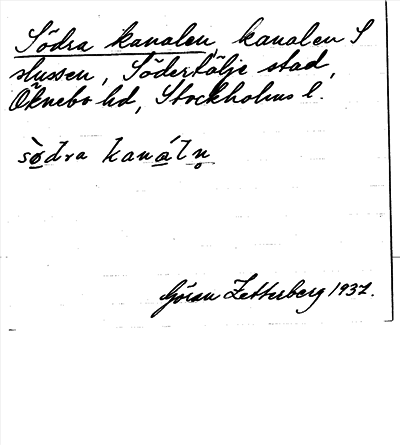 Södra kanalen, kanalen S
slussen, Södertälje stad,
Öknebo hd, Stockholms l.
sø̀dra kanáln̥
Göran Zetterberg 1937.